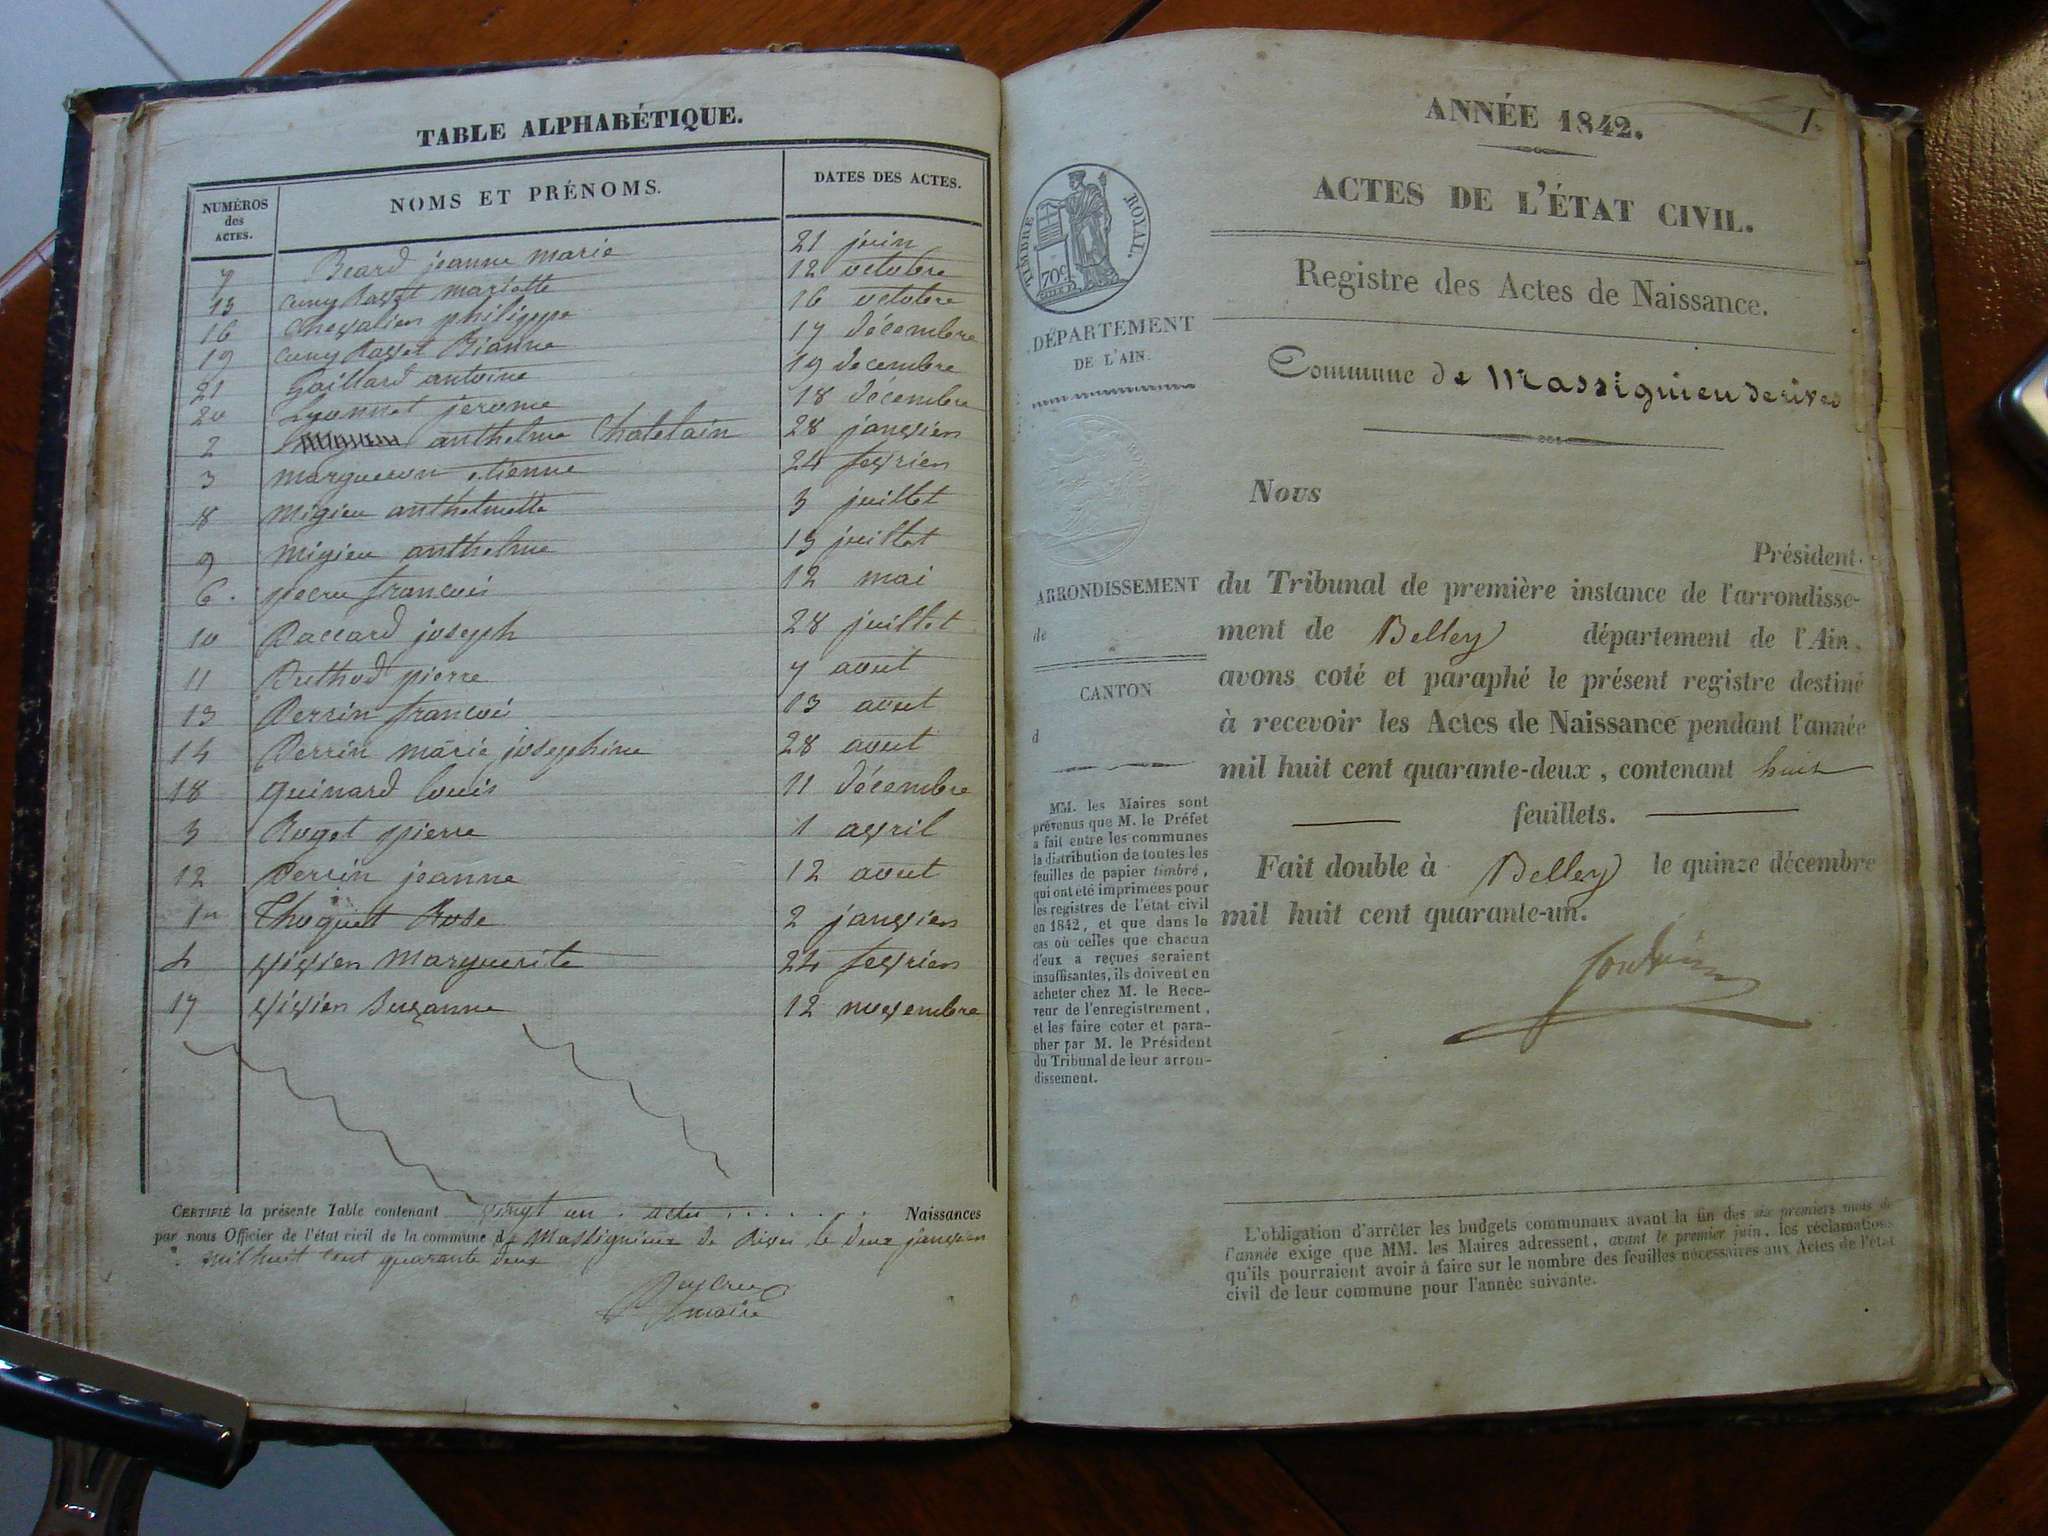 TABLE ALPHABÉTIQUE.
NUMÉROS des ACTES. NOMS ET PRÉNOMS. DATES DES ACTES.
7 Beard jeanne marie 21 juin
15 cuny Rasset mariette 12 octobre
16 chevalier philippe 16 octobre
19 cuny Rasset 17 décembre
21 Gaillard antoine 19 decembre
20 Lyonnet jerome 18 décembre
2 anthelme Chatelain 28 janvier
3 margueron etienne 24 fevrier
8 migieu anthelmette 3 juillet
9 migieu anthelme 13 juillet
6. pecru francois 12 mai
10 Raccard joseph 28 juillet
11 Ruthod pierre 7 aout
13 Perrin francoi 13 aout
14 Perrin marie josephine 28 aout
18 quinard louis 11 décembre
5 Roget pierre 1 avril
12 Perrin jeanne 12 aout
1er Thoquet Rose 2 janvier
4 vivien Marguerite 24 fevrier
17 vivien Suzanne 12 novembre
CERTIFIÉ la présente Table contenant vingt un actes Naissances
par nous Officier de l'état civil de la commune de Massignieux de Rives le deux janvier
mil huit cent quarante deux
maire
ANNÉE 1842. 1.
ACTES DE L'ÉTAT CIVIL.
Registre des Actes de Naissance.
Commune de Massignieu de rives
TIMBRE ROYAL.
70c
DÉPARTEMENT
DE L'AIN.
ARRONDISSEMENT
de
CANTON
d
MM. les Maires sont
prévenus que M. le Préfet
a fait entre les communes
la distribution de toutes les
feuilles de papier timbré,
qui ont été imprimées pour
les registres de l'état civil
en 1842, et que dans le
cas où celles que chacun
d'eux a reçues seraient
insuffisantes, ils doivent en
acheter chez M. le Rece-
veur de l'enregistrement,
et les faire coter et para-
pher par M. le Président
du Tribunal de leur arron-
dissement.
Nous
Président
du Tribunal de première instance de l'arrondisse-
ment de Belley département de l'Ain,
avons coté et paraphé le présent registre destiné
à recevoir les Actes de Naissance pendant l'année
mil huit cent quarante-deux, contenant huit
feuillets.
Fait double à Belley le quinze décembre
mil huit cent quarante-un.
L'obligation d'arrêter les budgets communaux avant la fin des six premiers mois de
l'année exige que MM. les Maires adressent, avant le premier juin, les réclamations
qu'ils pourraient avoir à faire sur le nombre des feuilles nécessaires aux Actes de l'état
civil de leur commune pour l'année suivante.